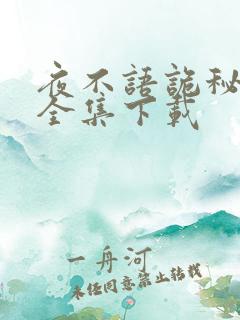 夜不語詭秘
全集下載
一舟河
未经同意禁止转载